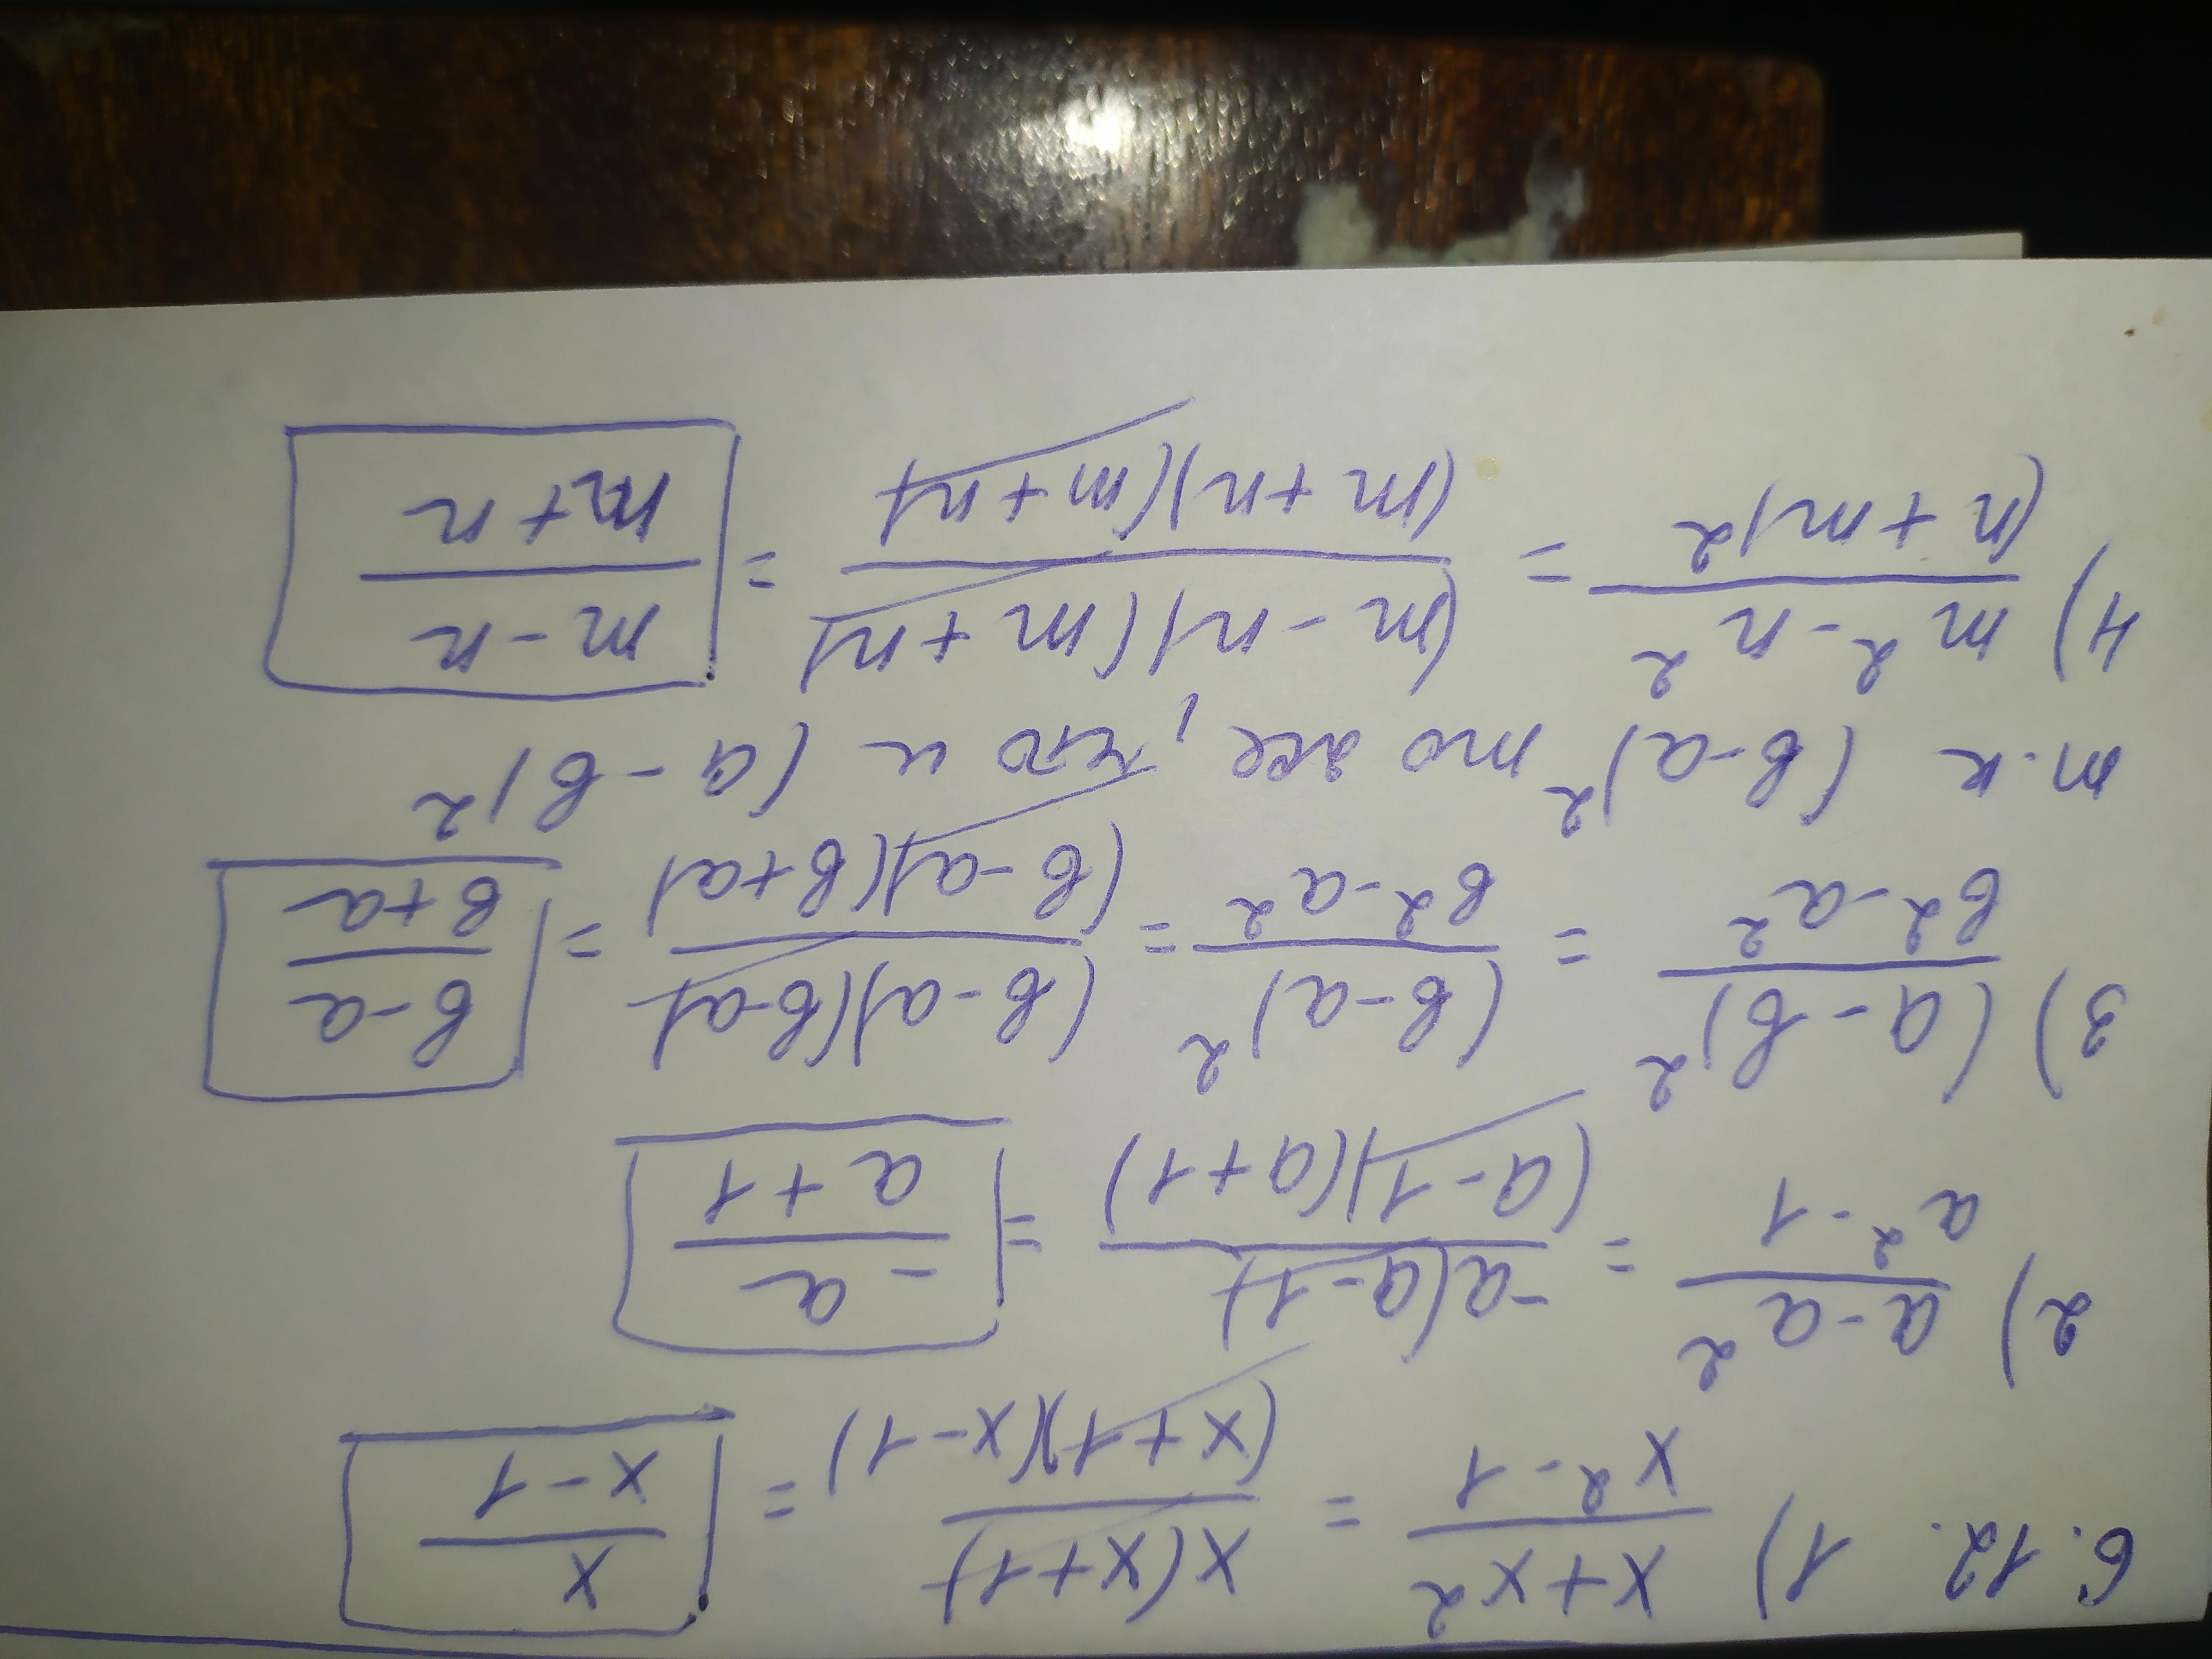 6.12. 1) \frac{x+x^2}{x^2-1} = \frac{x(x+1)}{(x+1)(x-1)} = \frac{x}{x-1}
2) \frac{a-a^2}{a^2-1} = \frac{-a(a-1)}{(a-1)(a+1)} = \frac{-a}{a+1}
3) \frac{(a-b)^2}{b^2-a^2} = \frac{(b-a)^2}{b^2-a^2} = \frac{(b-a)(b-a)}{(b-a)(b+a)} = \frac{b-a}{b+a}
т.к (b-a)^2 то же, что и (a-b)^2
4) \frac{m^2-n^2}{(n+m)^2} = \frac{(m-n)(m+n)}{(m+n)(m+n)} = \frac{m-n}{m+n}